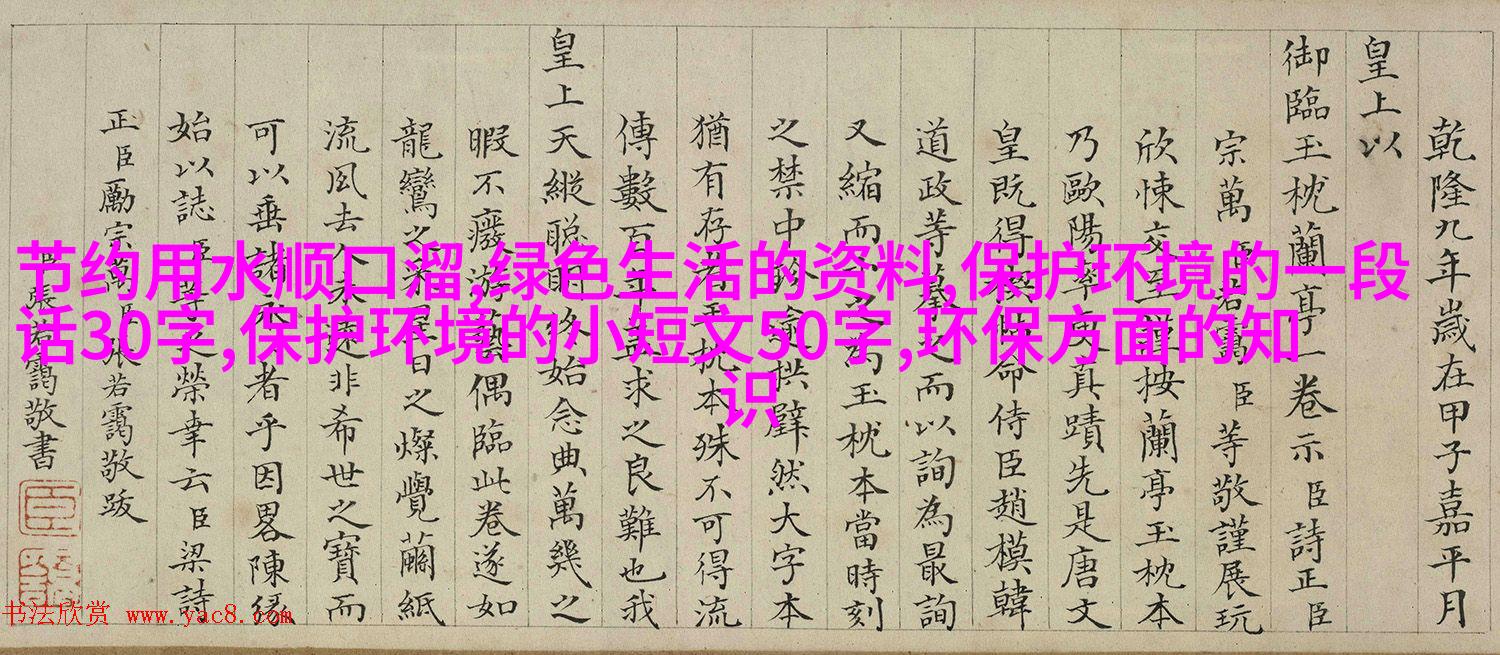 乾隆九年歲在甲子嘉平月
皇上以
御臨玉枕蘭亭一卷示臣詩正臣
宗萬臣若靄臣等敬謹展玩
欣悚交至謹按蘭亭玉枕本
乃歐陽率更真蹟先是唐文
皇既得命侍臣趙模韓
道政等摹之而以詢為最詢
又縮而之為玉枕本當時刻
之禁中珍逾拱璧然大字本
猶有存者玉枕本殊不可得流
傳數百年求之良難也我
皇上天縱聰明終始念典萬幾之
暇不癈游藝偶臨此卷遂如
龍鸞之日之燦覺繭紙
流風去人未遠非希世之寶而
可以垂諸者乎因畧陳緣
始以誌臣等之榮幸云臣梁詩
正臣勵宗萬臣張若靄敬跋
張若靄敬書
节约用水顺口溜,绿色生活的资料,保护环境的一段
话30字,保护环境的小短文50字,环保方面的知
识
书法欣赏 www.yac8.com